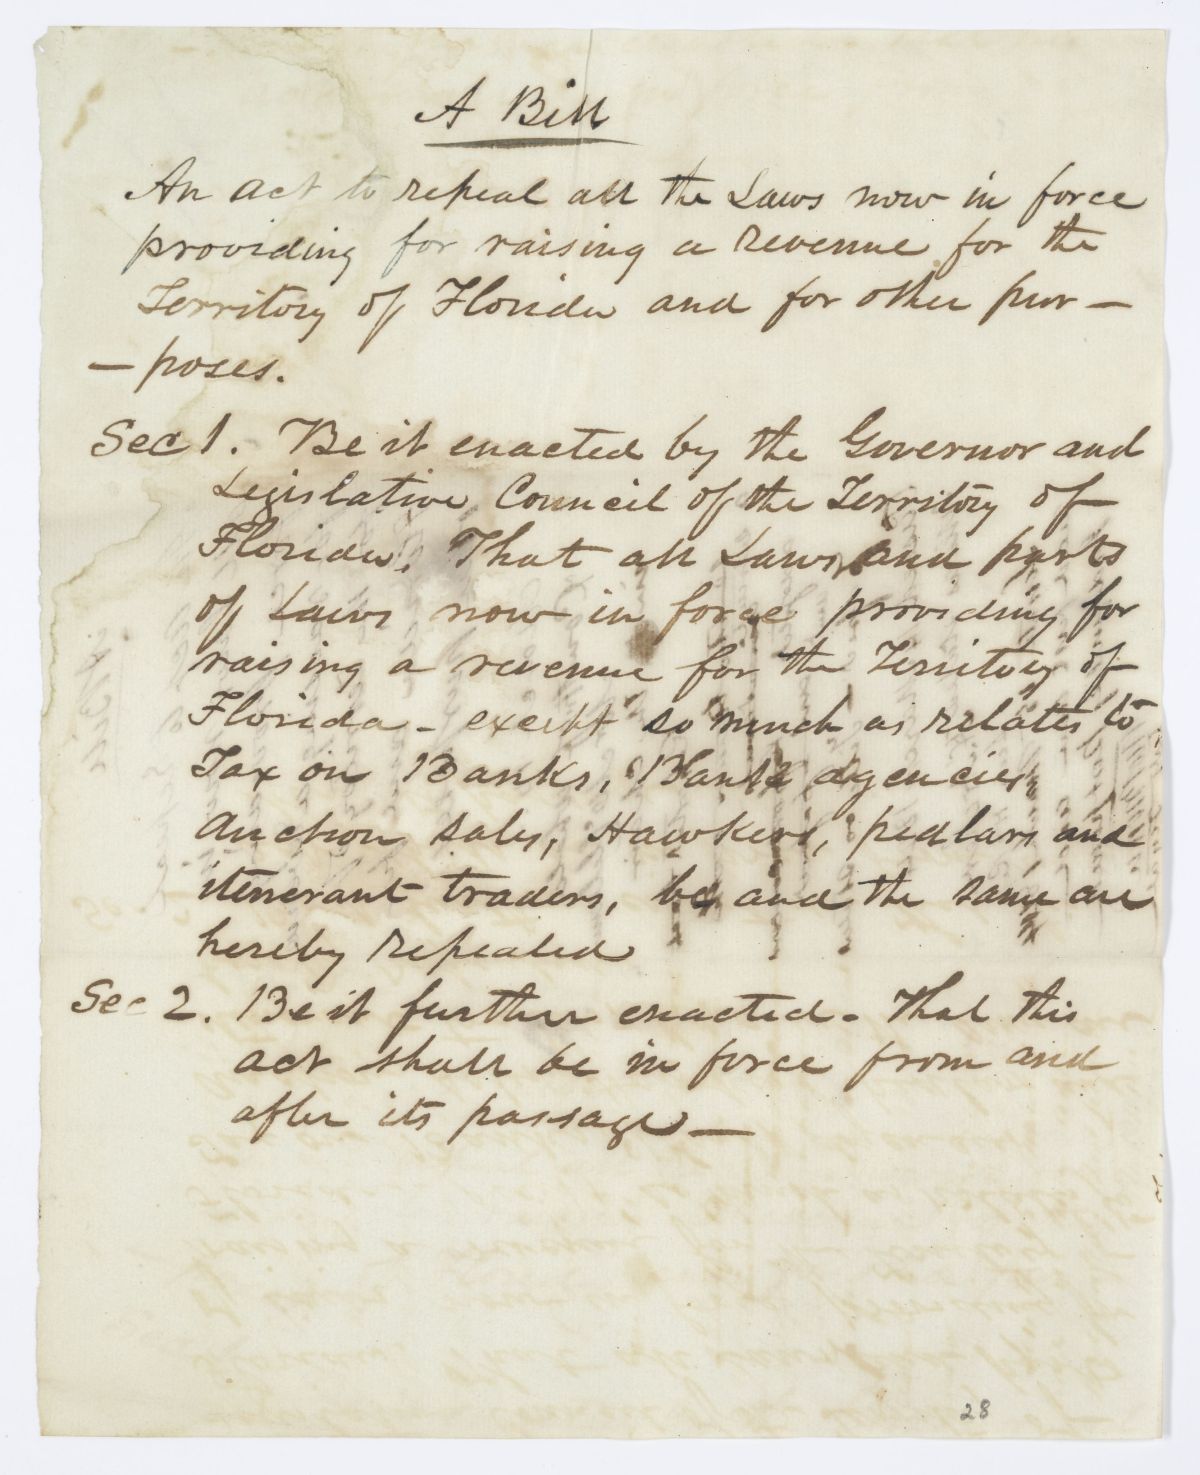 A Bill
An act to repeal all the Laws now in force
providing for raising a revenue for the
Territory of Florida and for other pur —
— poses.
Sec 1. Be it enacted by the Governor and
Legislative Council of the Territory of
Florida. That all Laws, and parts
of Laws now in force providing for
raising a revenue for the Territory of
Florida - except so much as relates to
Tax on Banks, Bank agencies
Auction sales, Hawkers, pedlars and
itenerant traders, be and the same are
hereby repealed
Sec 2. Be it further enacted - That this
act shall be in force from and
after its passage —
28